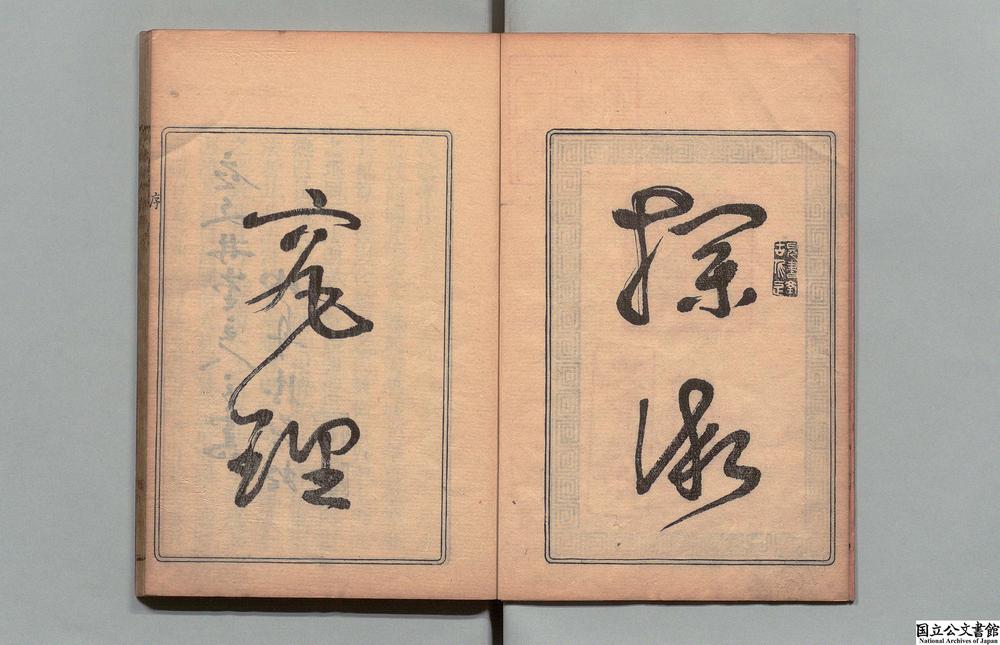 探
微
究
理
序
国立公文書館
National Archives of Japan